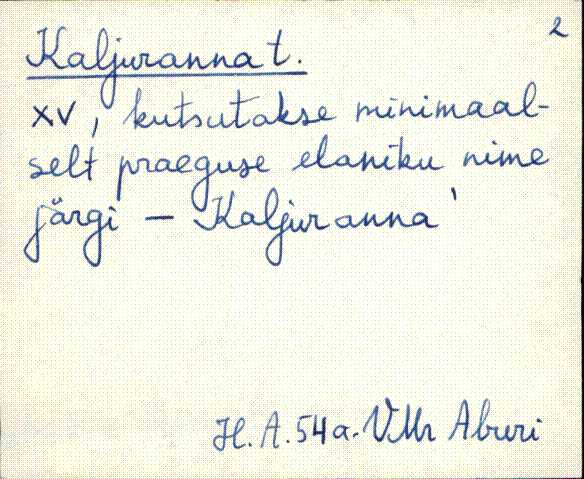 2
Kaljuranna t.
XV, kutsutakse minimaal-
selt praeguse elaniku nime
järgi – Kaljuranna'
H. A. 54 a. VMr Aburi